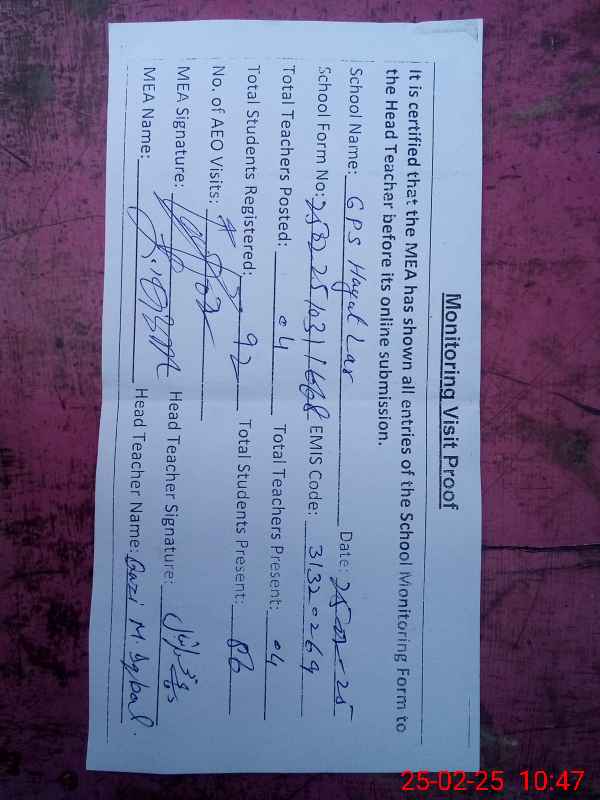 Monitoring Visit Proof
It is certified that the MEA has shown all entries of the School Monitoring Form to
the Head Teacher before its online submission.
School Name: GPS Hayat Lar Date: 25-02-25
School Form No: EMIS Code: 31320269
Total Teachers Posted: 04 Total Teachers Present: 04
Total Students Registered: 92 Total Students Present: 86
No. of AEO Visits:
MEA Signature: Head Teacher Signature:
MEA Name: Head Teacher Name: Qazi M. Iqbal.
25-02-25 10:47